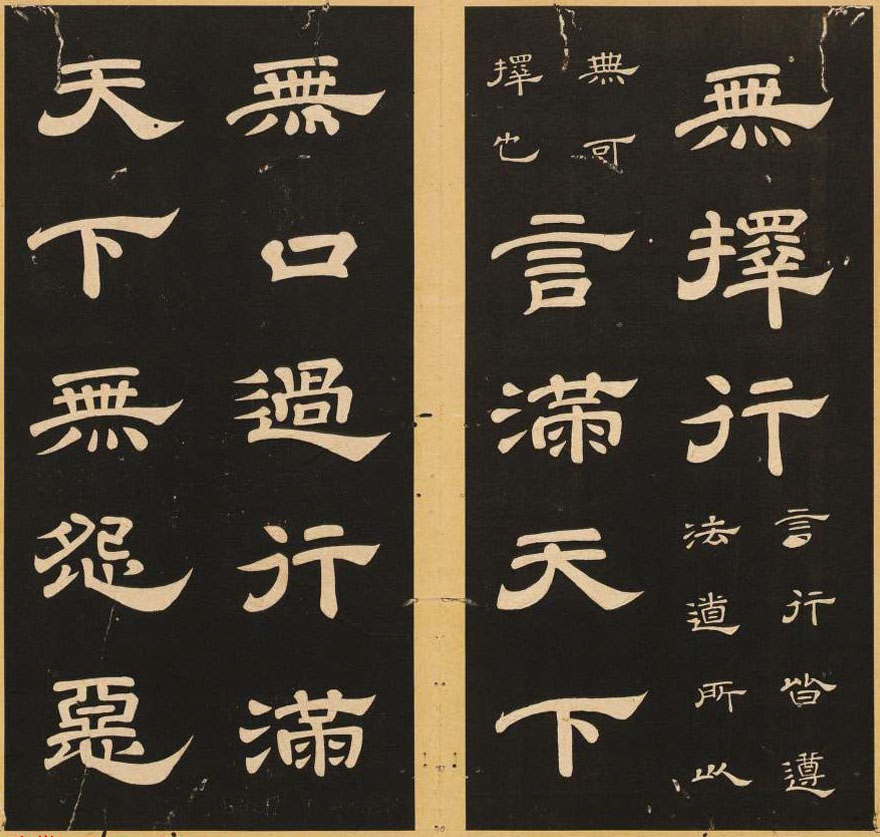 無擇行
言行皆遵
法道所以
無可
擇也
言滿天下
無口過行滿
天下無怨惡